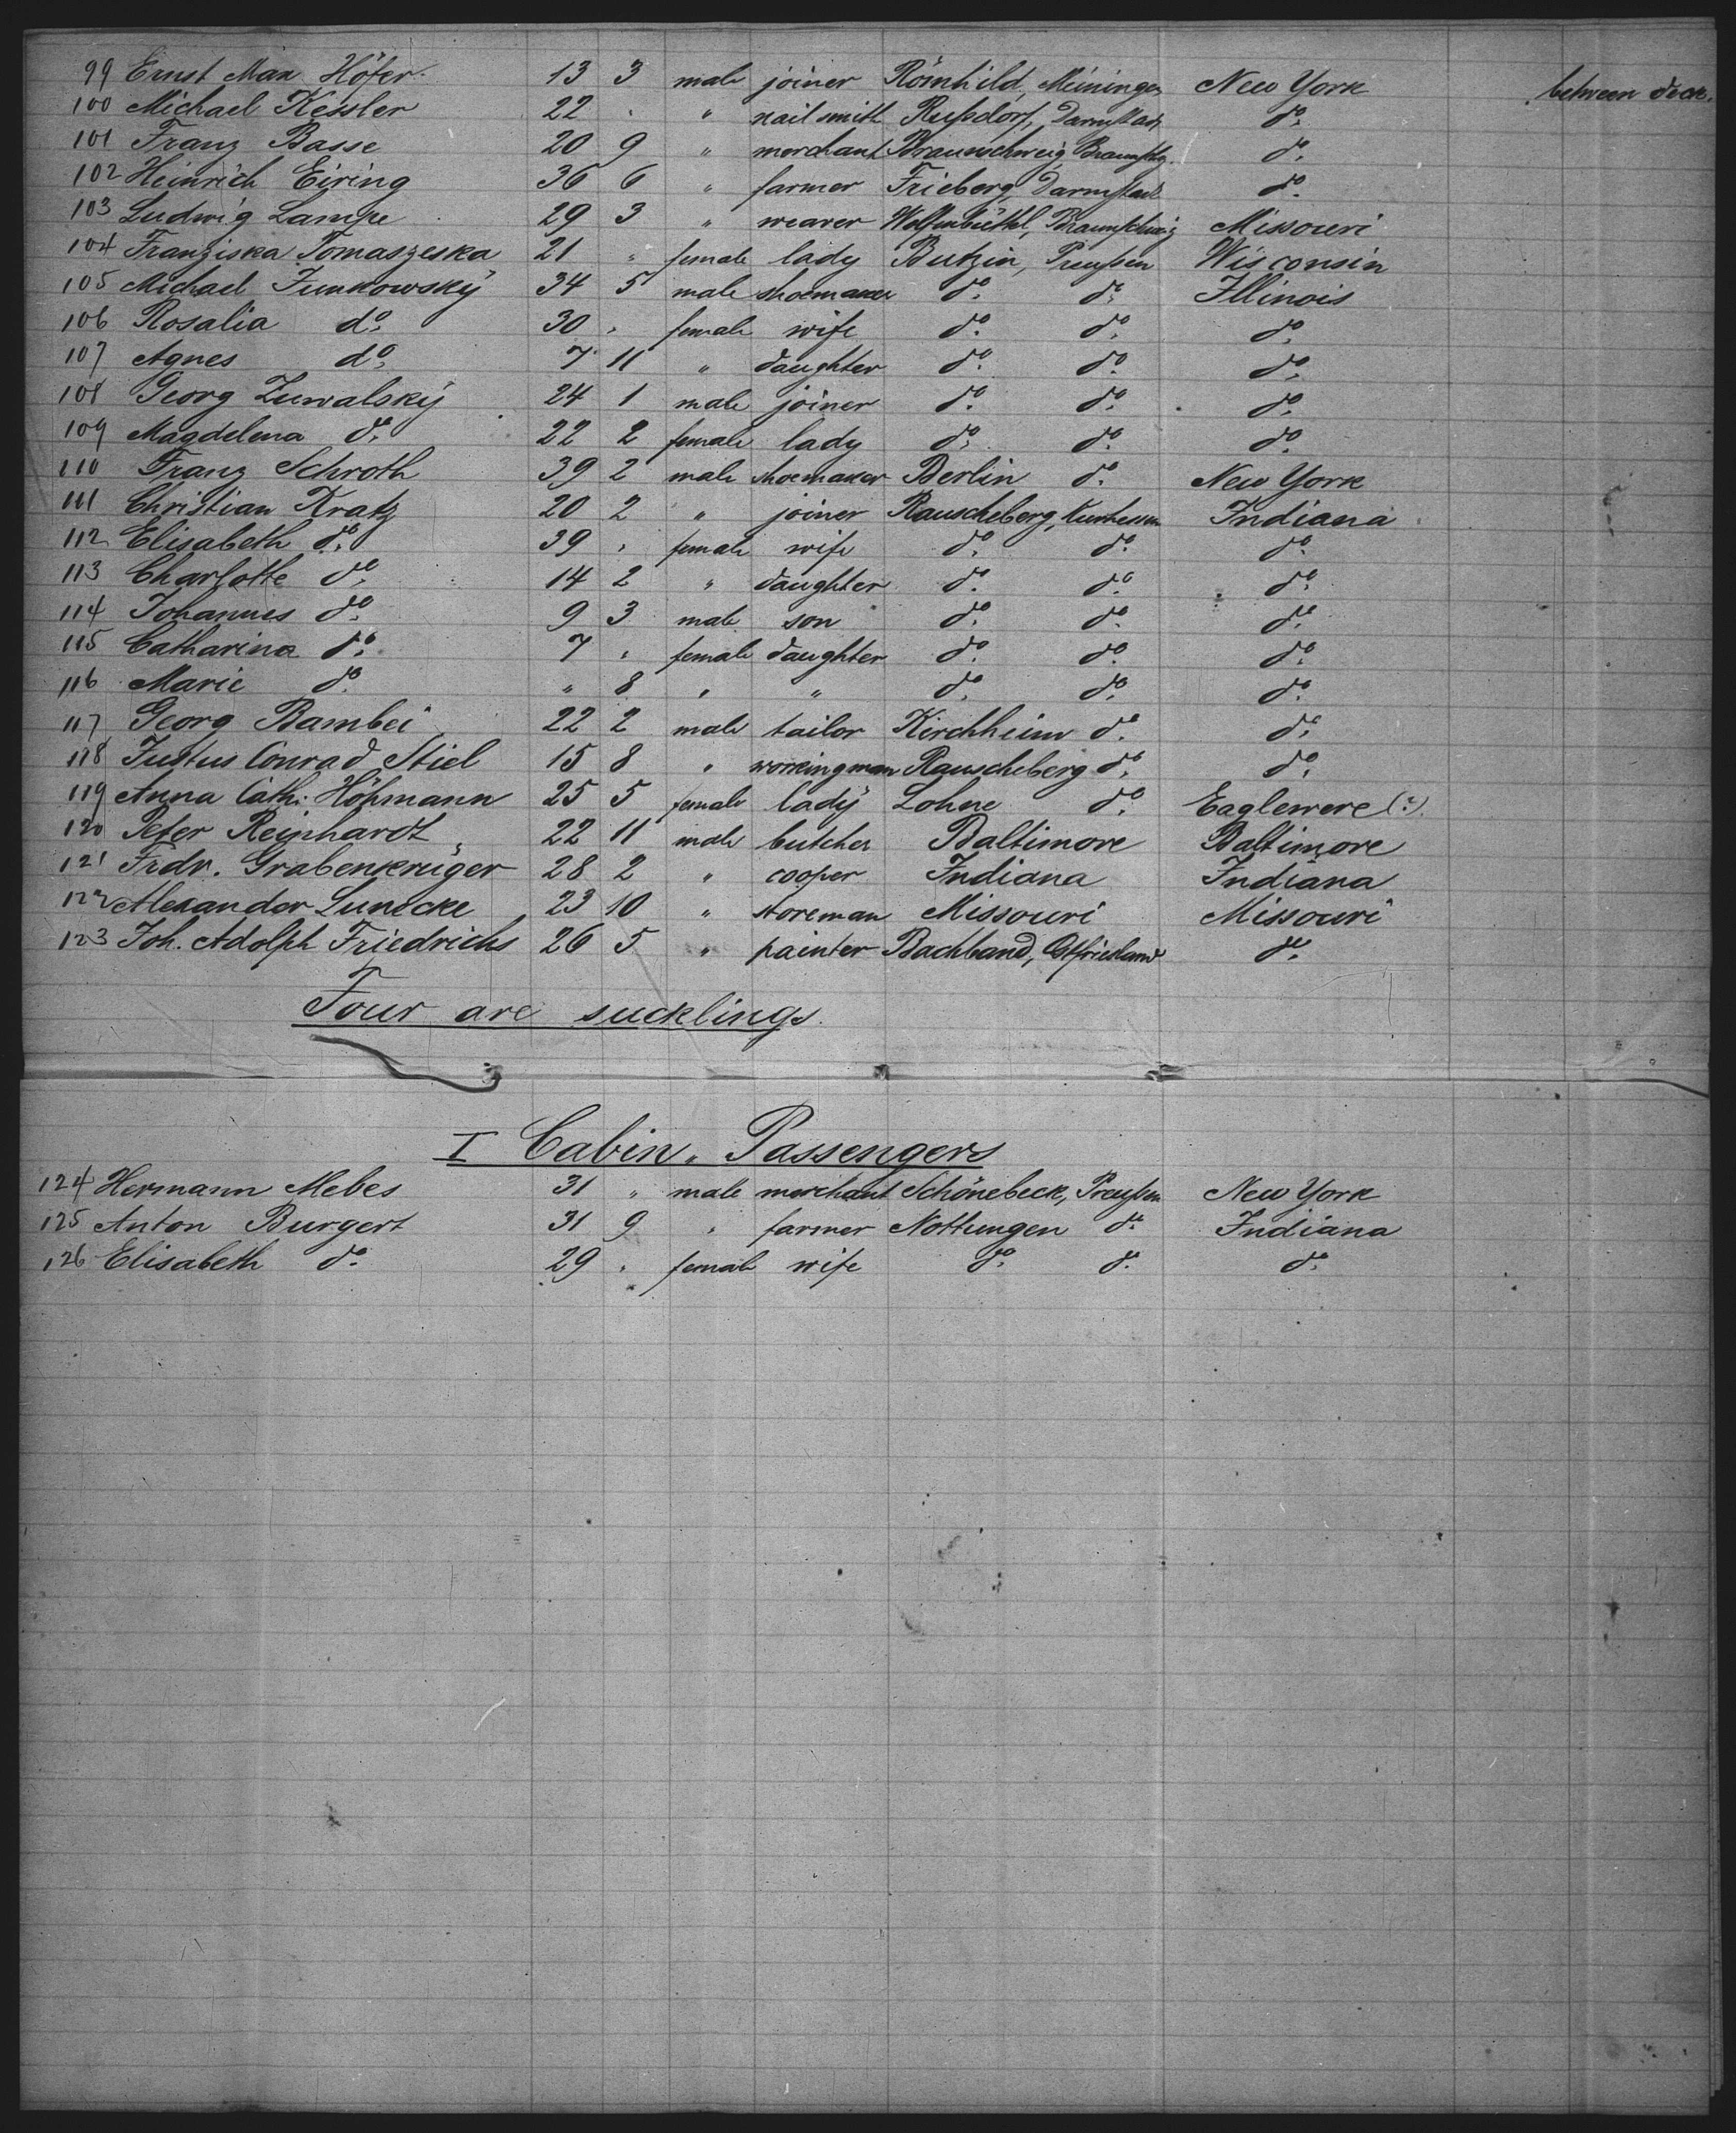 99 Ernst Max Höfer. 13 3 male joiner Römhild, Meiningen New York between deck.
100 Michael Kessler 22 " " nail smith Rußdorf, Darmstadt do.
101 Franz Basse 20 9 " merchant Braunschweig, Braunschg. do.
102 Heinrich Eiring 36 6 " farmer Frieberg, Darmstadt do.
103 Ludwig Lampe 29 3 " weaver Wolfenbüttel, Braunschweig Missouri
104 Franziska Tomaszeska 21 " female lady Butzin, Preußen Wisconsin
105 Michael Junkowsky 34 5 male shoemaker do. do. Illinois
106 Rosalia do. 30 " female wife do. do. do.
107 Agnes do. 7 11 " daughter do. do. do.
108 Georg Zuwalsky 24 1 male joiner do. do. do.
109 Magdelena do. 22 2 female lady do. do. do.
110 Franz Schroth 39 2 male shoemaker Berlin do. New York
111 Christian Kratz 20 2 " joiner Rauscheberg, Kurhessen Indiana
112 Elisabeth do. 39 " female wife do. do. do.
113 Charlotte do. 14 2 " daughter do. do. do.
114 Johannes do. 9 3 male son do. do. do.
115 Catharina do. 7 " female daughter do. do. do.
116 Marie do. " 8 " " do. do. do.
117 Georg Bambei 22 2 male tailor Kirchheim do. do.
118 Justus Conrad Stiel 15 8 " workingman Rauscheberg do. do.
119 Anna Cath: Höhmann 25 5 female lady Lohne do. Eaglewere (?).
120 Peter Reinhardt 22 11 male butcher Baltimore Baltimore
121 Frdr. Grabenkrüger 28 2 " cooper Indiana Indiana
122 Alexander Lunecke 23 10 " storeman Missouri Missouri
123 Joh. Adolph Friedrichs 26 5 " painter Bachband, Ostfriesland do.
Four are sucklings.
I Cabin Passengers
124 Hermann Mebes 31 " male merchant Schönebeck, Preußen New York
125 Anton Burgert 31 9 " farmer Nottungen do. Indiana
126 Elisabeth do. 29 " female wife do. do. do.